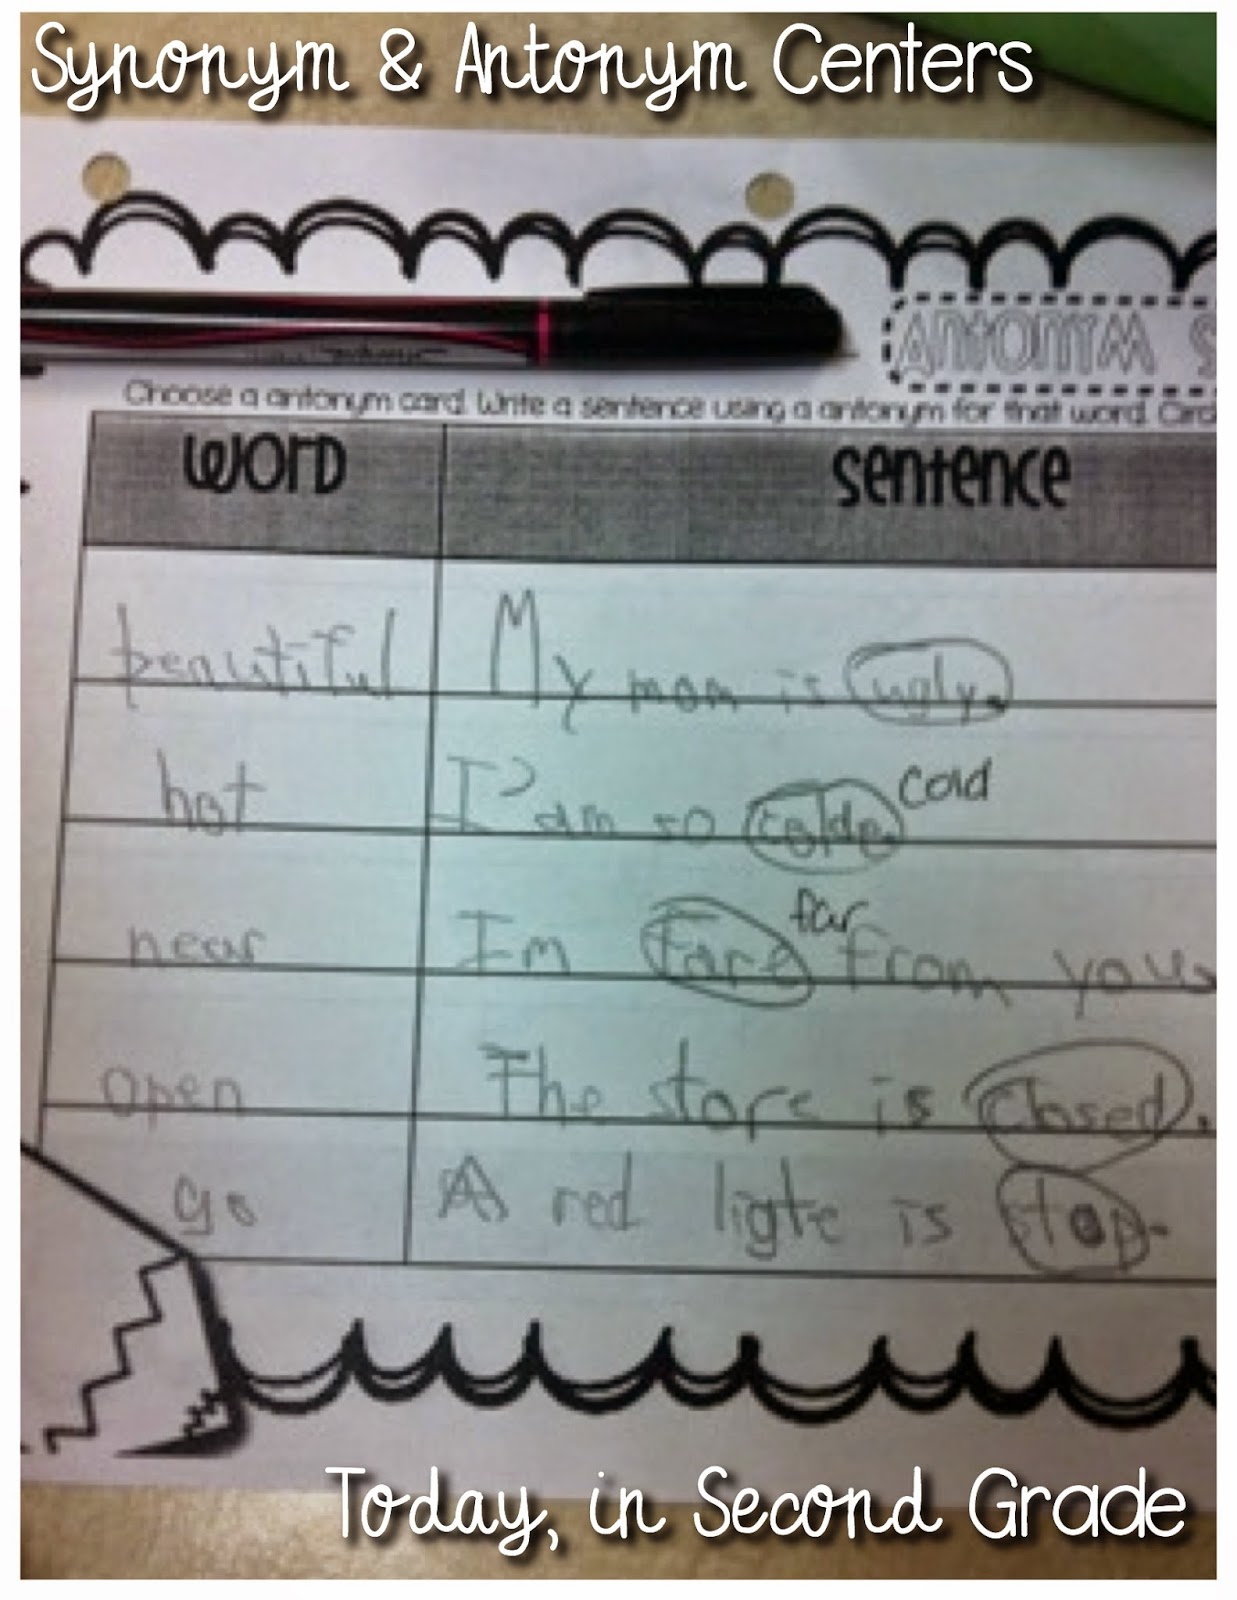 Synonym & Antonym Centers
ANTONYM S
Choose a antonym card. Write a sentence using a antonym for that word. Circ
word sentence
beautiful My mom is ugly.
hot I'am so colde. cold
near Im fare far from you.
open The stors is closed.
go A red ligte is stop.
Today, in Second Grade